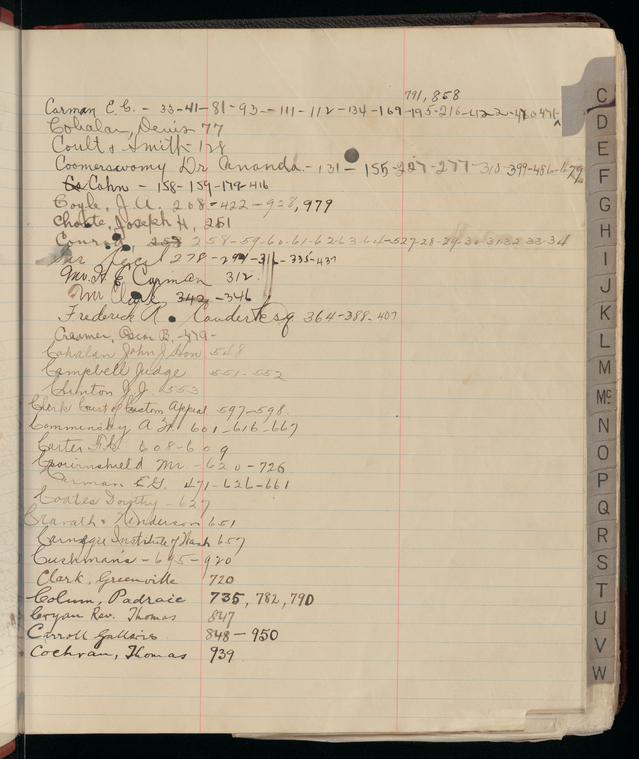 791, 858
Carman E.C. - 33-41-81-93-111-112-134-169-195-216-422-470 471-
Cohalan, Denis 77
Coult & Smith 128
Coomerswomy Dr Ananda - 131 - 155-207-277-310-399-486-
Cohn - 158-159-179-416
Coyle, J.A. 208-422-928, 979
Choate, Joseph H, 251
258-59-60-61-62-63-64-527-28-29-30 31-32 33-34
278-294-316-335-437
Mr. A. E Carman 312
Mr Clark 342-346
Frederick R. Coudert Esq 364-388-407
Craomer, Oscar B. -479-
Cohalan John J Hon 548
Campbell Judge 551-552
Clinton J.J. 553
Clerk Court of Custom Appeal 597-598
Comminsky A M 601-616-667
Carter 608-609
Mr - 620-726
Carman E.G. 471-626-661
Coates Dorothy - 627
Cravath & Henderson 651
Carnegie Institute of Wash 657
Cushman's - 695-920
Clark, Greenville 720
Colum, Padraic 735, 782, 790
Cryan Rev. Thomas 847
Carroll Galleries 848-950
Cochran, Thomas 939
C
D
E
F
G
H
I
J
K
L
M
Mc
N
O
P
Q
R
S
T
U
V
W